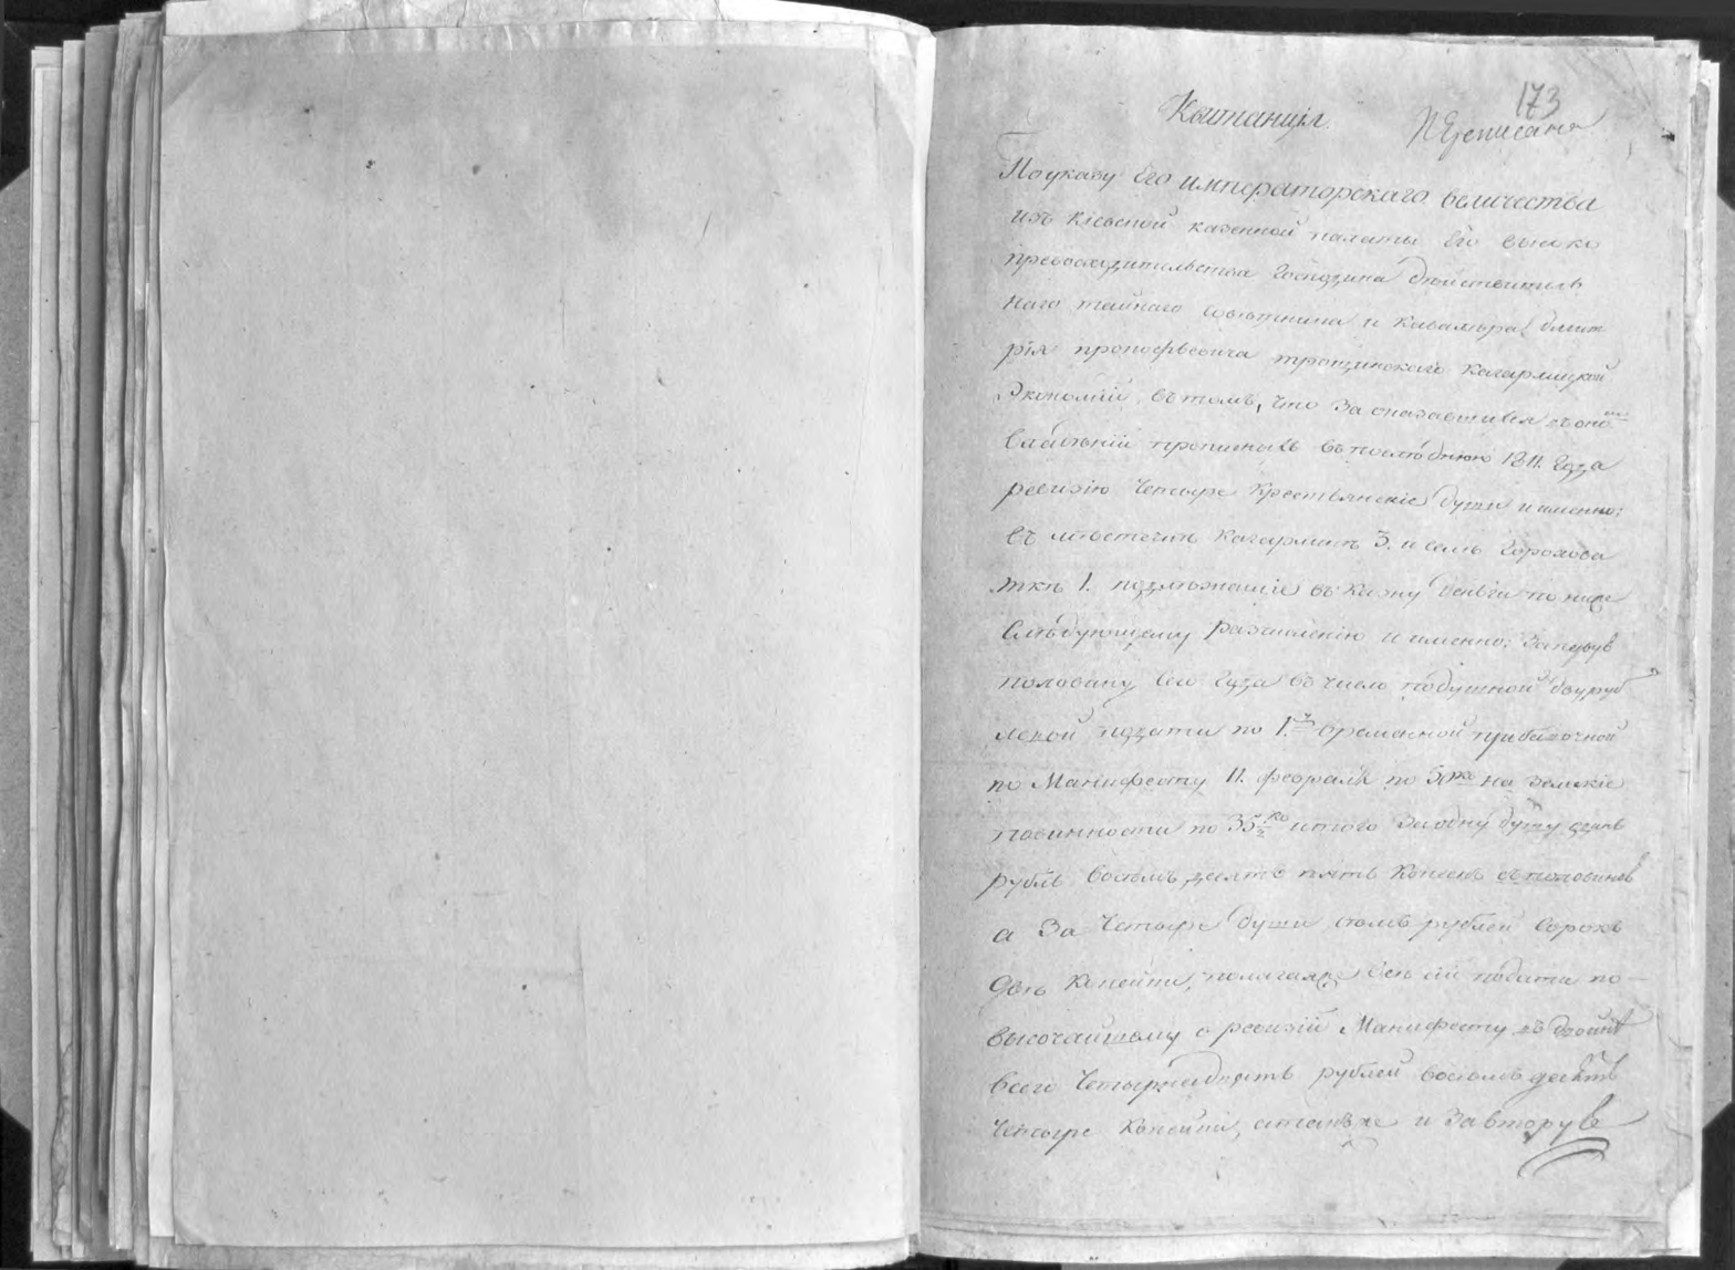 173
Квитанція. Переписана
По указу Его императорского величества
изъ кіевской казенной палаты Его высоко
превосходительства Господина действитель
наго тайнаго советника и кавалера Дмит
рія прокофьевича трощинскаго кагарлицкой
Экономіи въ томъ, что За оказавшиися въ оной
владѣніи прописныхъ въ последнюю 1811. года
ревизію Четыре Крестьянские души и именно:
въ мѣстечке Кагарлике 3. и селе Горохова
ткѣ 1. подлежащие въ казну деньги по ниже
следующему разчисленію и именно: За первую
половину сего года въ число подушной двуруб
левой подати по 1. временной прибавочной
по Манифесту 11. февраля по 50 ко на земские
повинности по 35½ ко итого За одну душу одинъ
рубль восемьдесятъ пять Копеекъ съ половиною
а За Четыре души семь рублей сорокъ
две Копейки, полагая же все сіи подати по
высочайшему о ревизіи Манифесту въ двойне
всего Четырнадцать рублей восемьдесятъ
Четыре Копейки, а также и За вторую